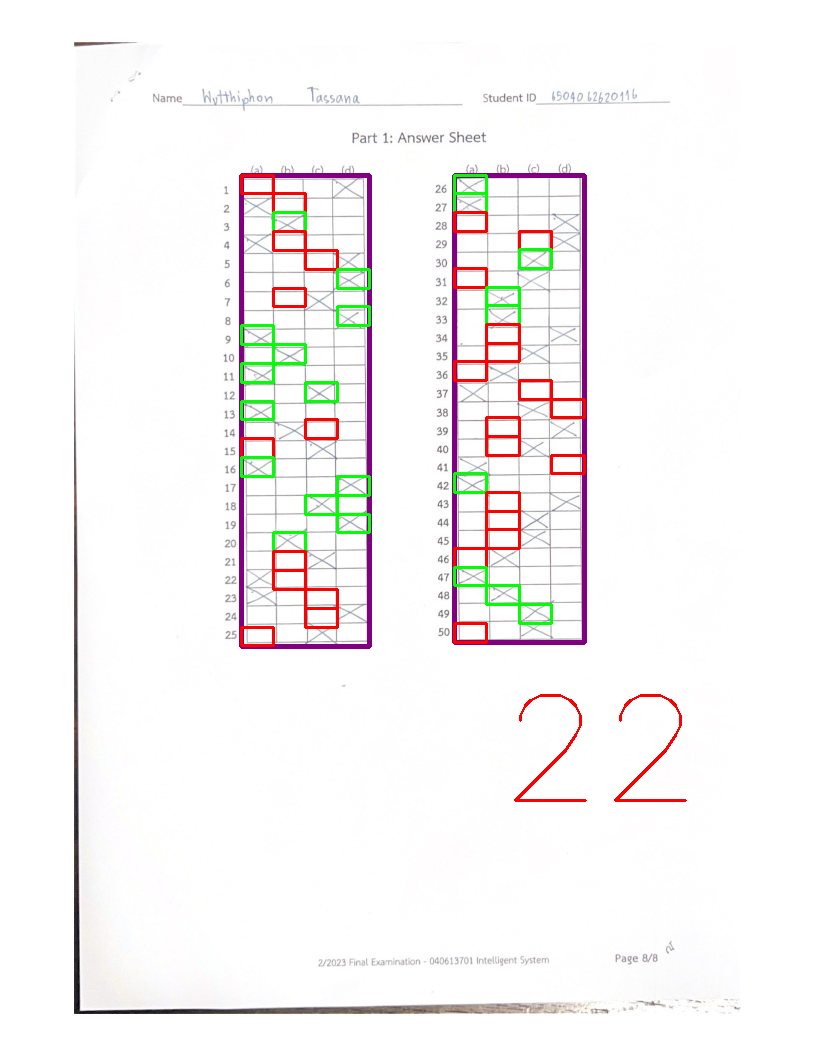 Name Wutthiphon Tassana Student ID 6504062620116
Part 1: Answer Sheet
(a) (b) (c) (d)
1
2
3
4
5
6
7
8
9
10
11
12
13
14
15
16
17
18
19
20
21
22
23
24
25
(a) (b) (c) (d)
26
27
28
29
30
31
32
33
34
35
36
37
38
39
40
41
42
43
44
45
46
47
48
49
50
22
2/2023 Final Examination - 040613701 Intelligent System
Page 8/8